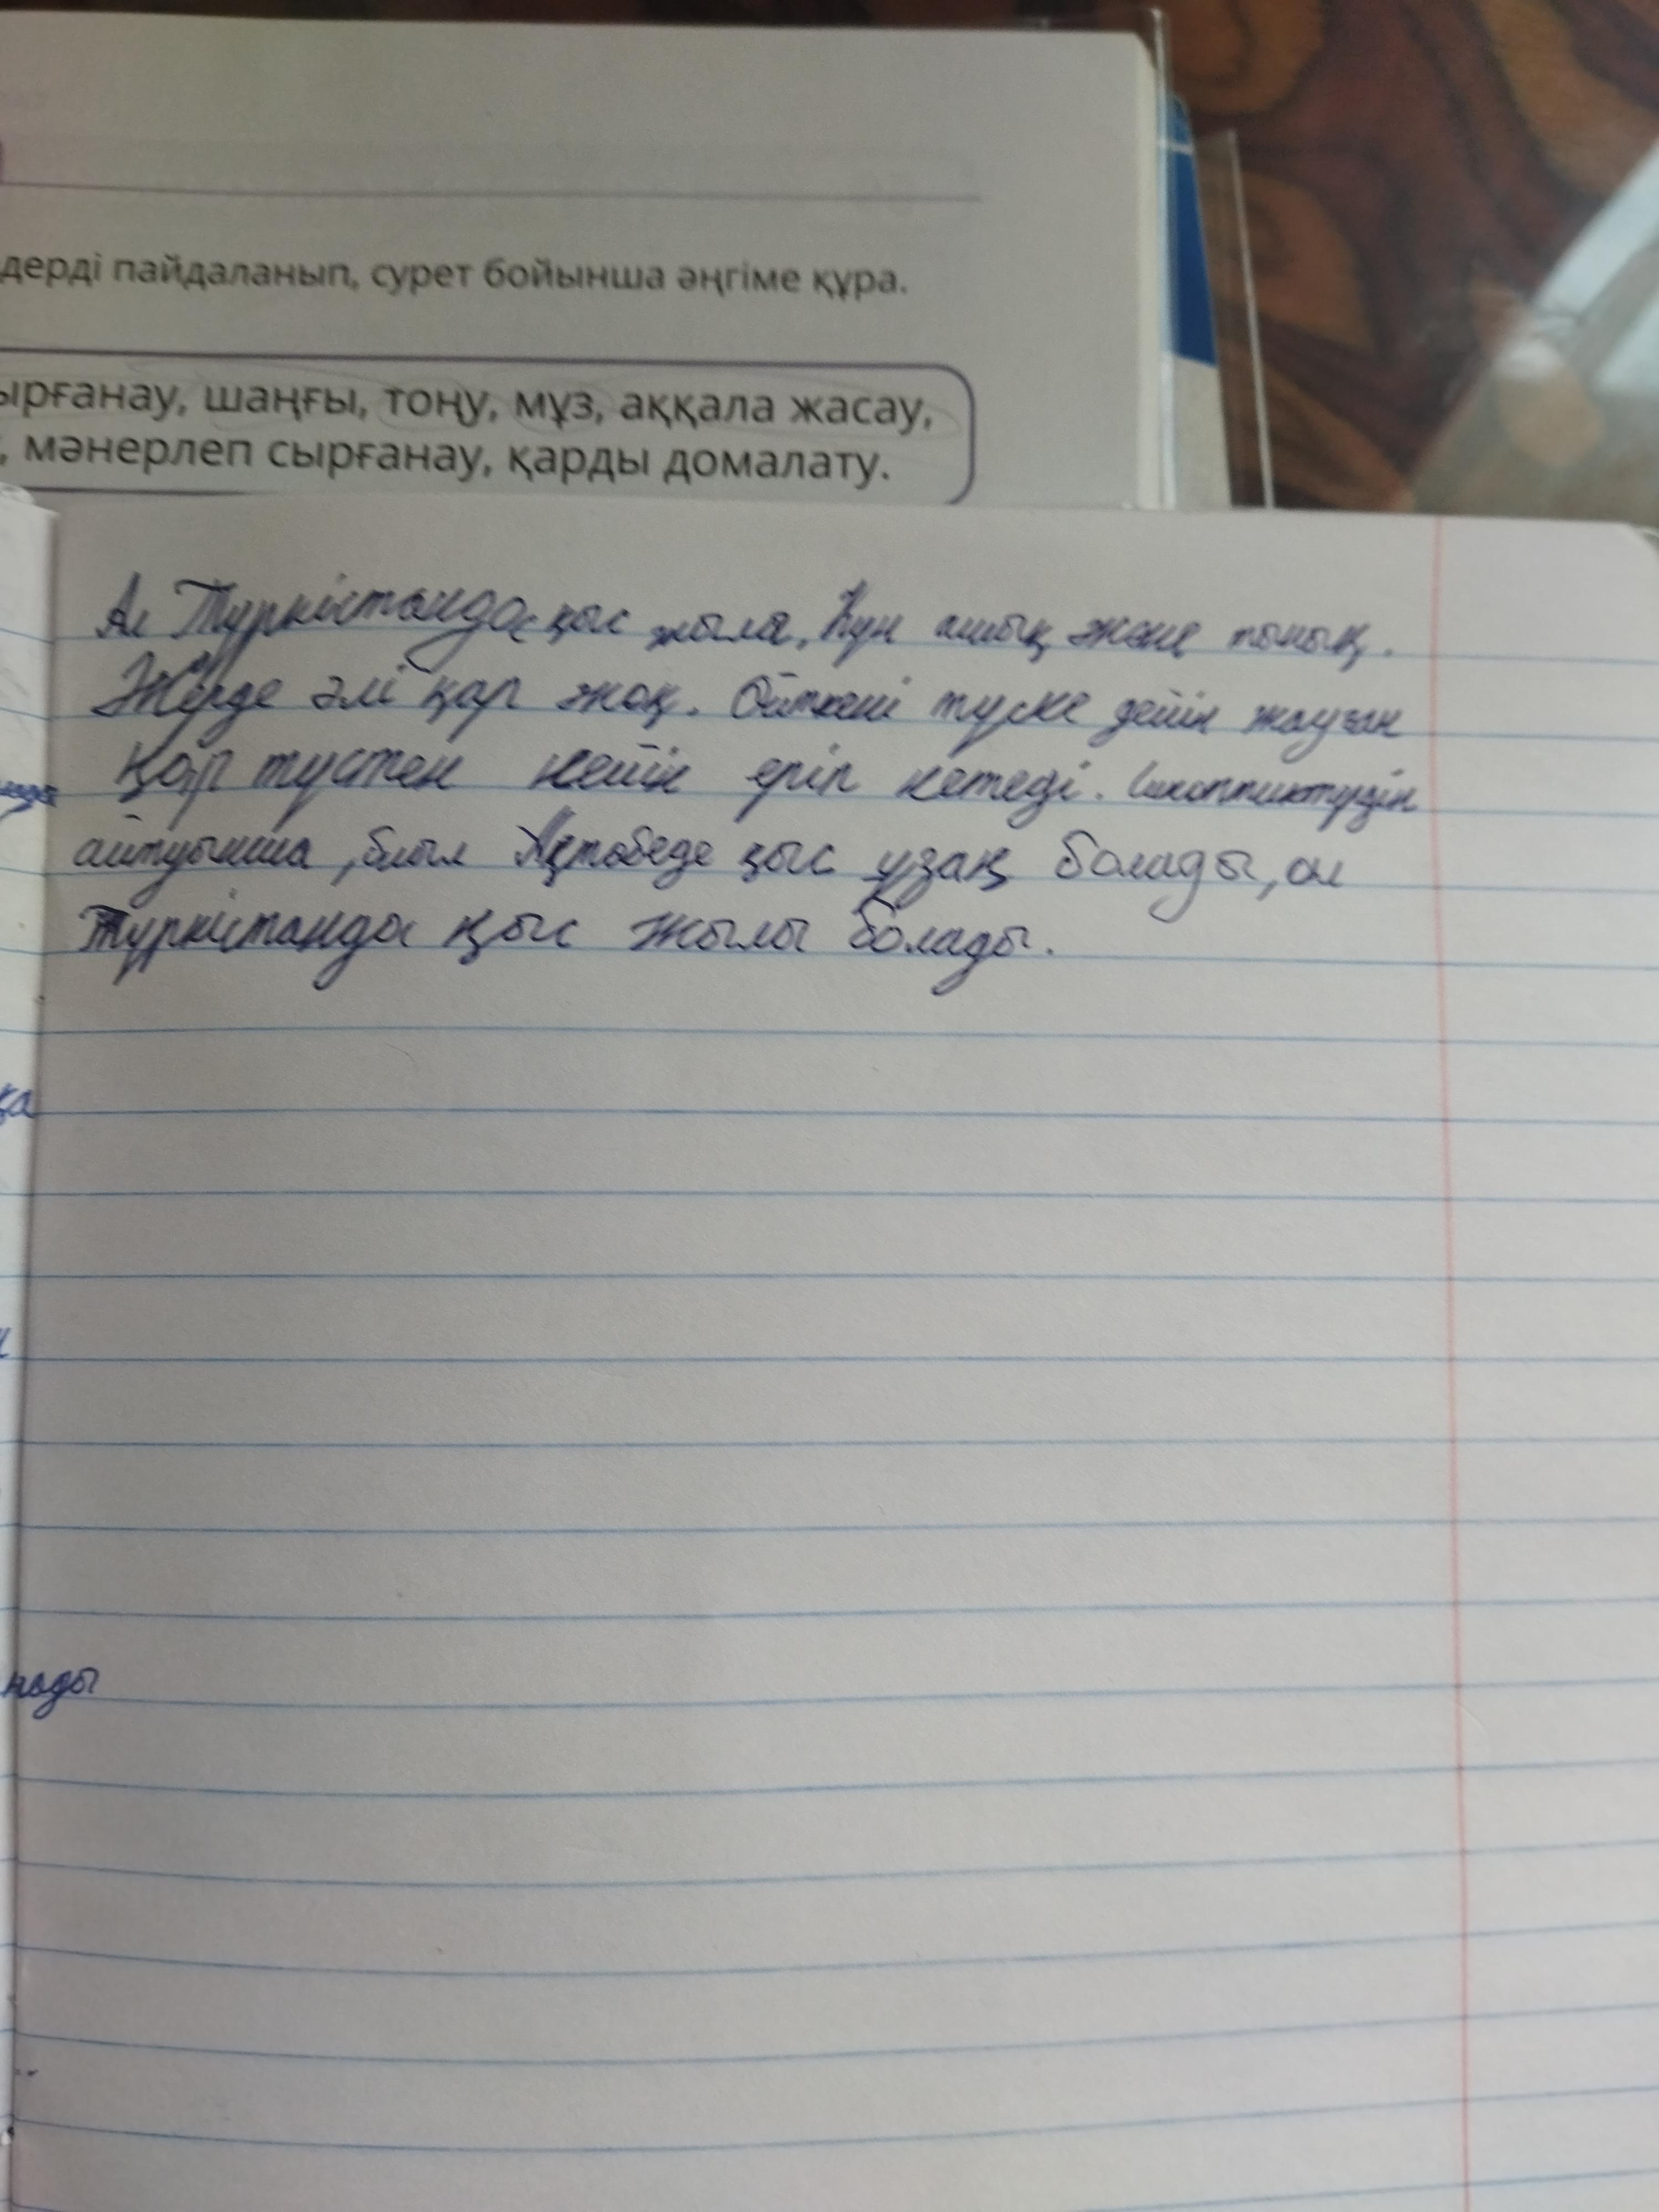 дерді пайдаланып, сурет бойынша әңгіме құра.
ырғанау, шаңғы, тоңу, мұз, аққала жасау,
, мәнерлеп сырғанау, қарды домалату.
Ал Түркістанда қыс жылы, Күн ашық және тынық.
Жерде әлі қар жоқ. Өйткені түске дейін жауған
Қар түстен кейін еріп кетеді.
айтуынша, биыл Ақтөбеде қыс ұзақ болады, ал
Түркістанда қыс жылы болады.
қа
нады